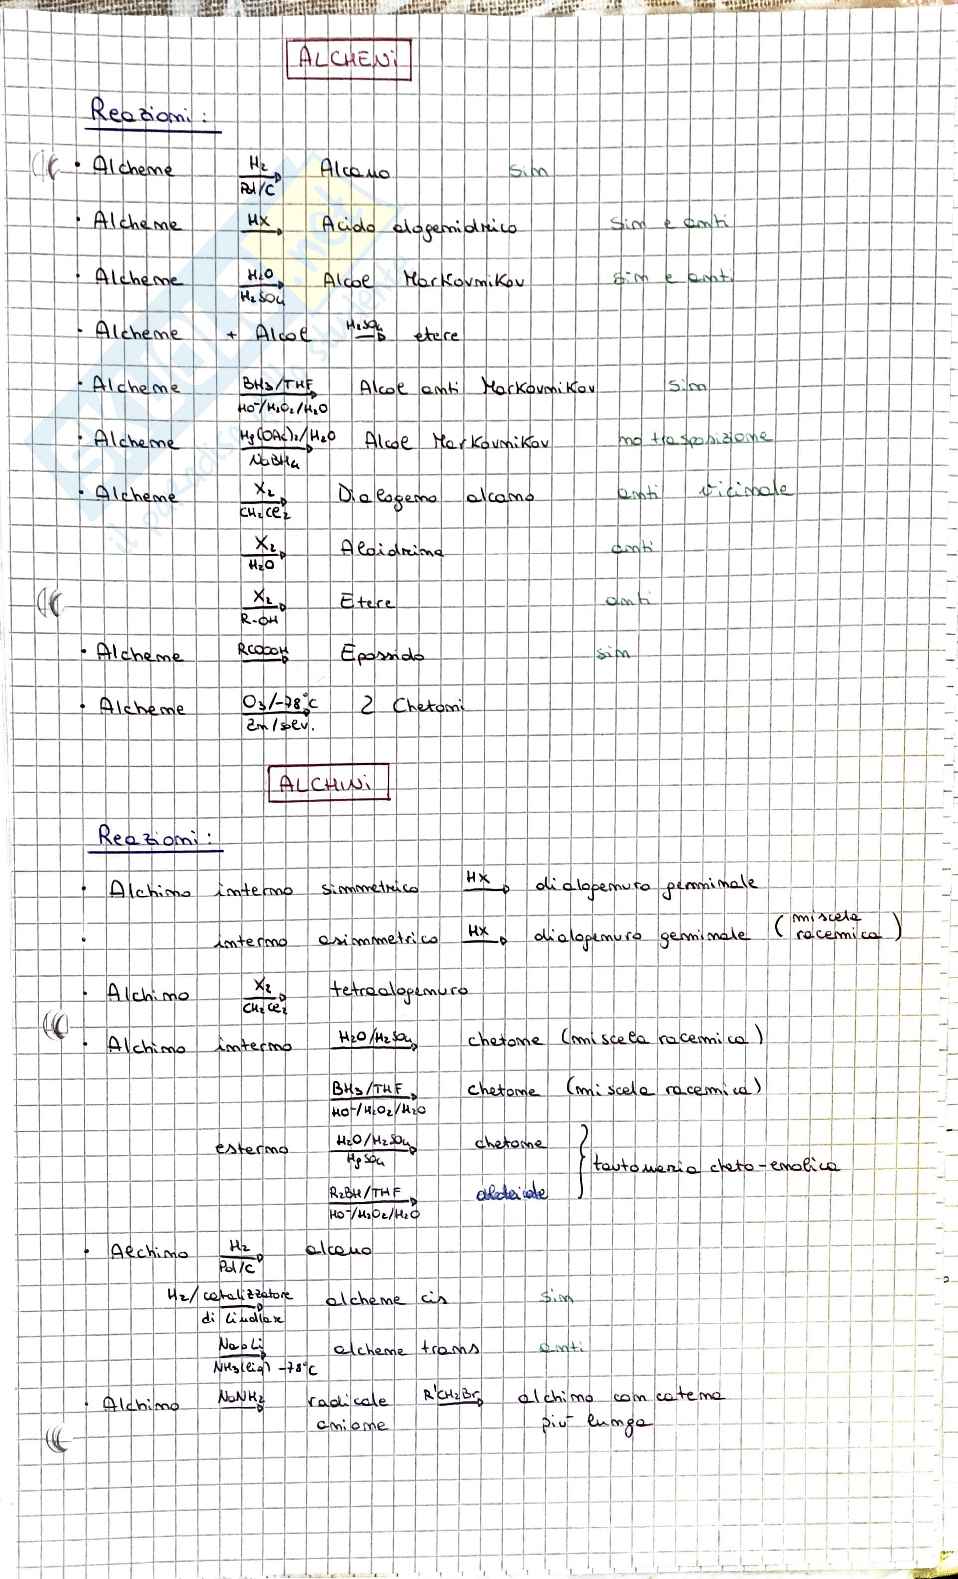 ALCHENI
Reazioni:
• Alchene H2 Pd/C Alcano sin
• Alchene HX Acido alogenidrico sin e anti
• Alchene H2O H2SO4 Alcol Markovnikov sin e anti
• Alchene + Alcol H2SO4 etere
• Alchene BH3/THF HO-/H2O2/H2O Alcol anti Markovnikov sin
• Alchene Hg(OAc)2/H2O NaBH4 Alcol Markovnikov no trasposizione
• Alchene X2 CH2Cl2 Dialogeno alcano anti vicinale
X2 H2O Aloidrina anti
X2 R-OH Etere anti
• Alchene RCOOOH Epossido sin
• Alchene O3/-78°C Zn/solv. 2 Chetoni
ALCHINI
Reazioni:
• Alchino interno simmetrico HX dialogenuro geminale
• interno asimmetrico HX dialogenuro geminale (miscela racemica)
• Alchino X2 CH2Cl2 tetraalogenuro
• Alchino interno H2O/H2SO4 chetone (miscela racemica)
BH3/THF HO-/H2O2/H2O chetone (miscela racemica)
esterno H2O/H2SO4 HgSO4 chetone
tautomeria cheto-enolica
R2BH/THF HO-/H2O2/H2O aldeide
• Alchino H2 Pd/C alcano
H2/catalizzatore di Lindlar alchene cis sin
Na o Li NH3(liq) -78°C alchene trans anti
• Alchino NaNH2 radicale anione R'CH2Br alchino con catena più lunga